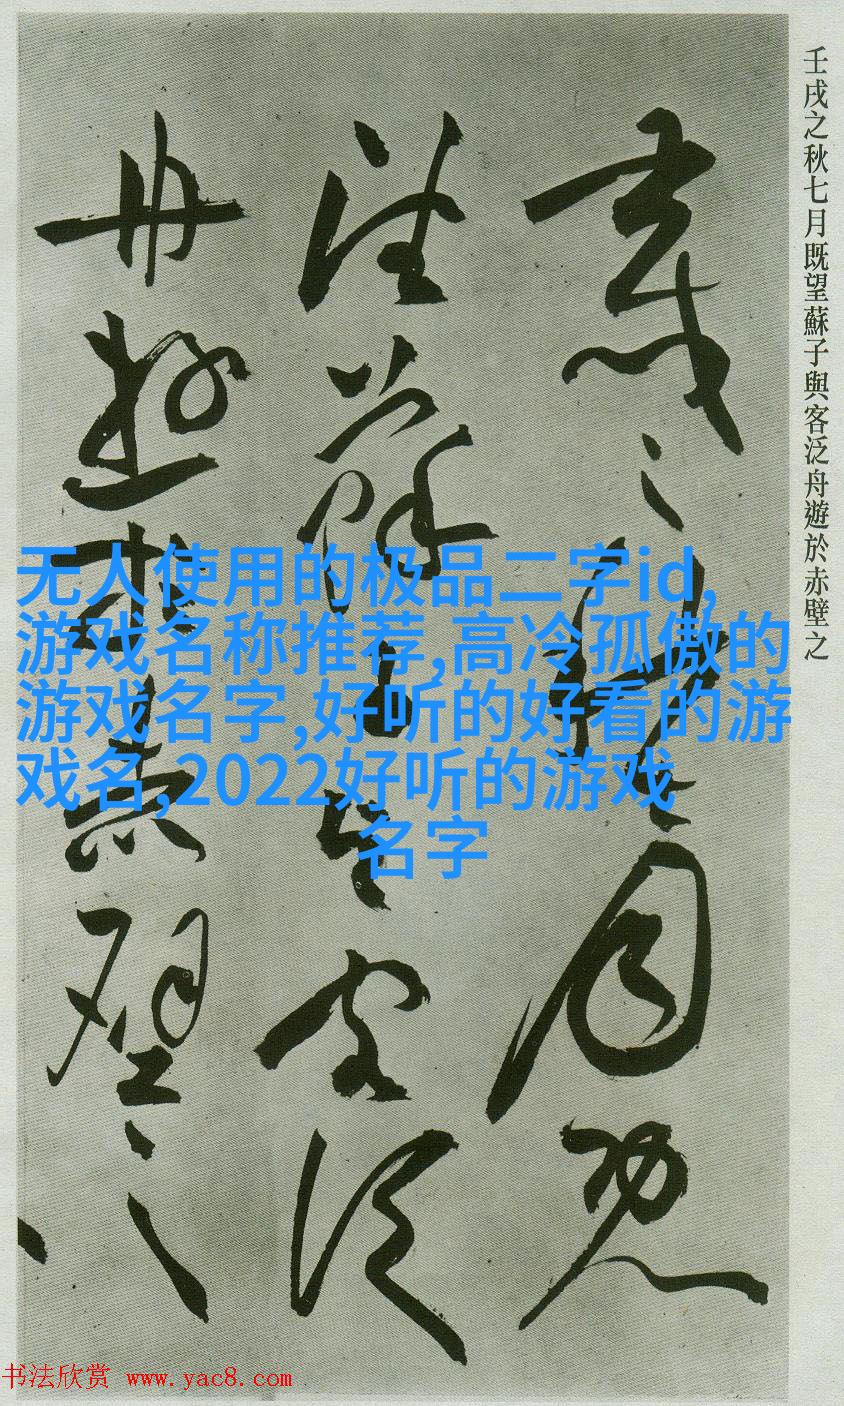 壬戌之秋七月既望蘇子與客泛舟遊於赤壁之
壬戌之秋七月既
望蘇子與客泛
舟遊於赤壁之
无人使用的极品二字id,
游戏名称推荐,高冷孤傲的
游戏名字,好听的好看的游
戏名,2022好听的游戏
名字
书法欣赏 www.yac8.com